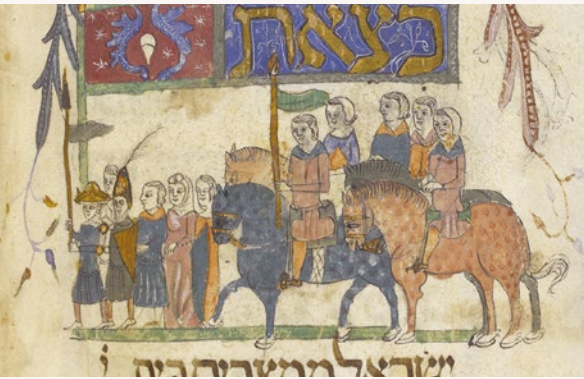 בצאת
ישראל ממצרים בית